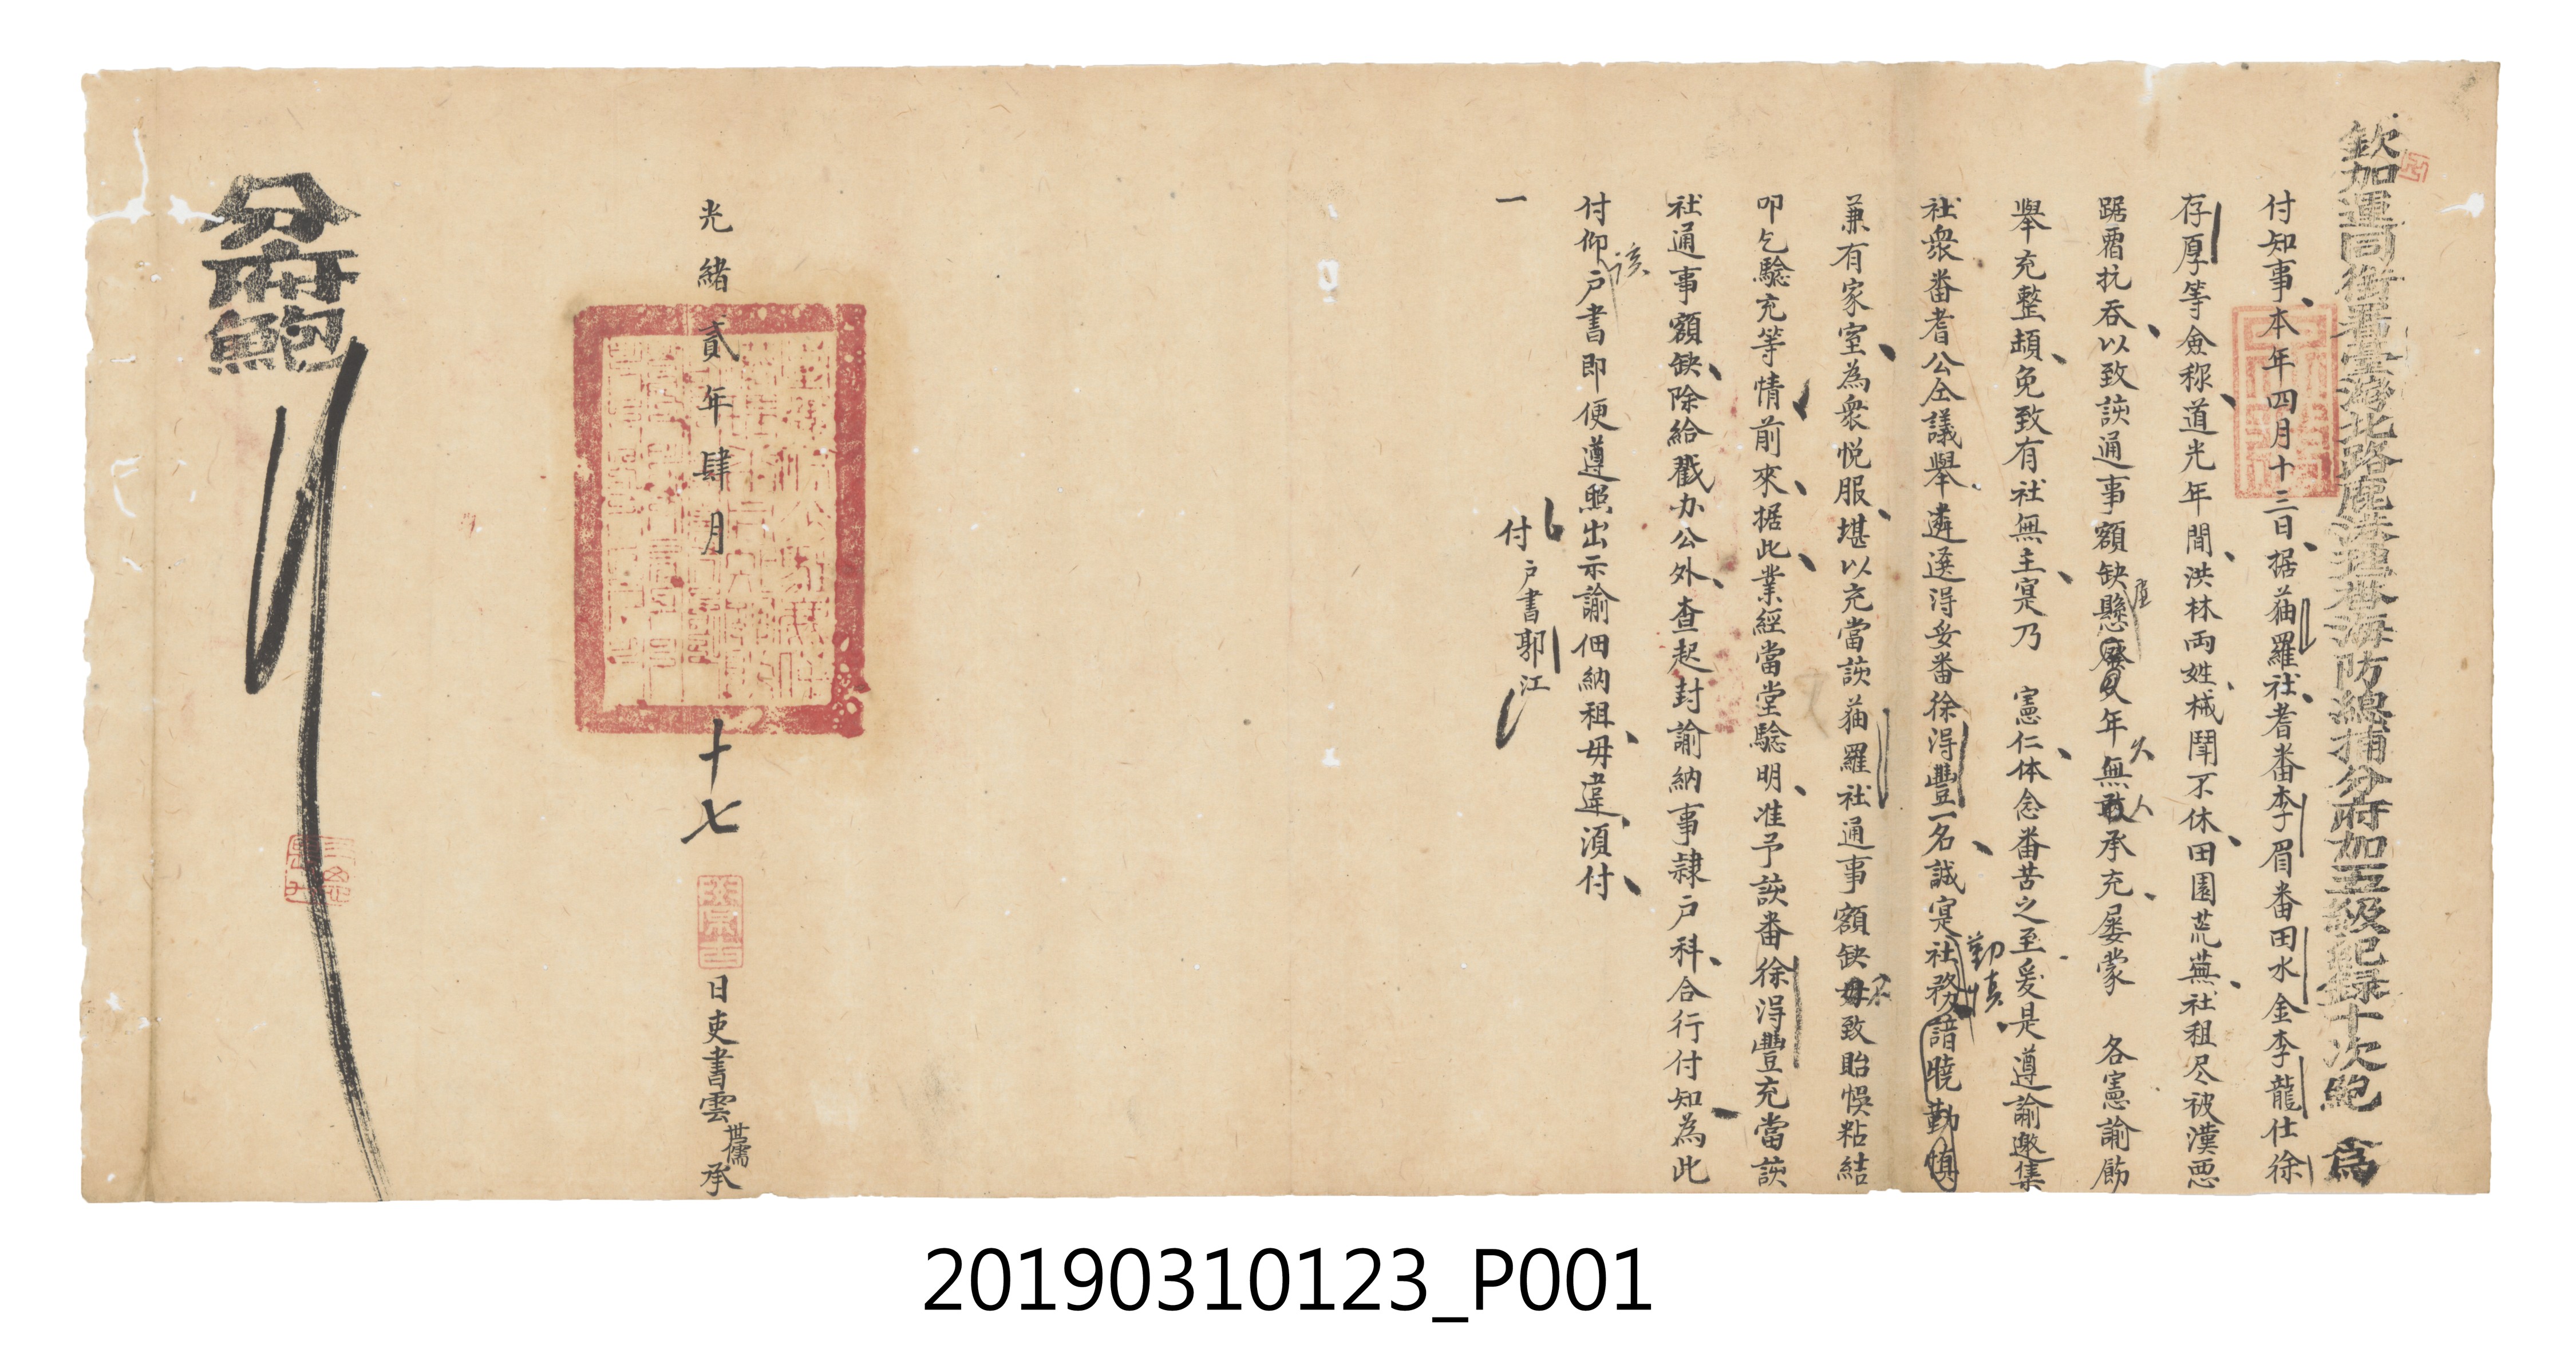 欽加運同銜署臺灣北路鹿港理番海防總捕分府加五級紀錄十次鮑 為
付知事本年四月十三日据猫羅社耆番李眉番田水金李龍仕徐
存厚等僉称道光年間洪林両姓械鬪不休田園荒蕪社租尽被漢悪
踞霸抗吞以致該通事額缺懸廢久年無敢承充屡蒙 各憲諭飭
虛
久
人
舉充整頓免致有社無主寔乃 憲仁体念番苦之至爰是遵諭邀集
社衆番耆公仝議舉遴選得妥番徐得豐一名誠寔社務諳曉勤慎
勤慎
兼有家室為衆悦服堪以充當該猫羅社通事額缺毋致貽悮粘結
不
叩乞驗充等情前來据此業經當堂驗明准予該番徐得豐充當該
社通事額缺除給戳办公外查起封諭納事隸户科合行付知為此
付仰户書即便遵照出示諭佃納租毋違須付
該
一 付户書郭江
光緒貳年肆月十七日吏書雲世儒承
分府鮑
20190310123_P001